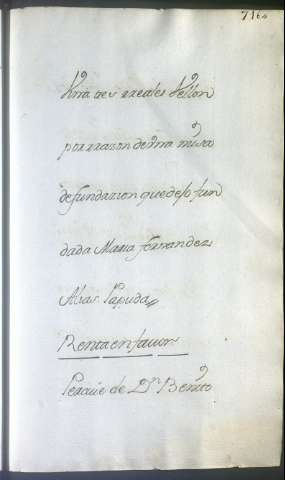 716
Vna tres rreales Vellon
por rrazon de Vna missa
de fundazion que dejo fun
dada Maria fernandez
Alias Papuda
Renta en favor
de Dn. Benito